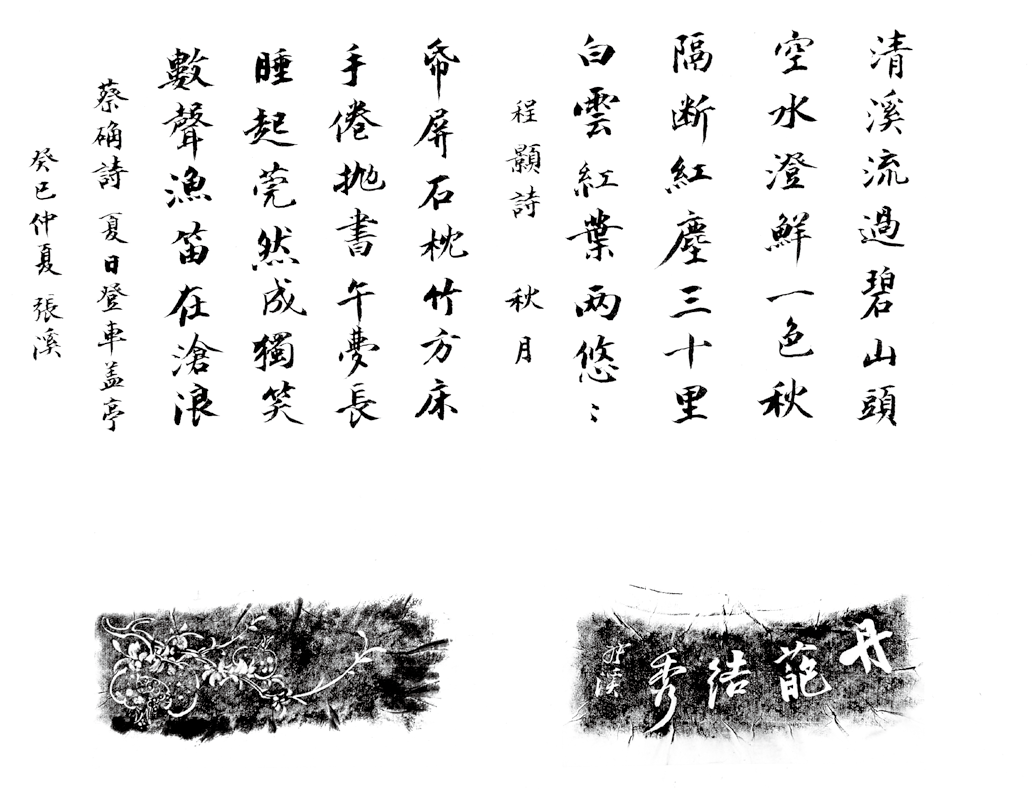 清溪流過碧山頭
空水澄鮮一色秋
隔断紅塵三十里
白雲紅葉两悠〻
程顥詩 秋月
帋屏石枕竹方床
手倦拋書午夢長
睡起莞然成獨笑
數聲漁笛在滄浪
蔡确詩 夏日登車盖亭
癸巳仲夏 張溪
丹葩結秀
溪